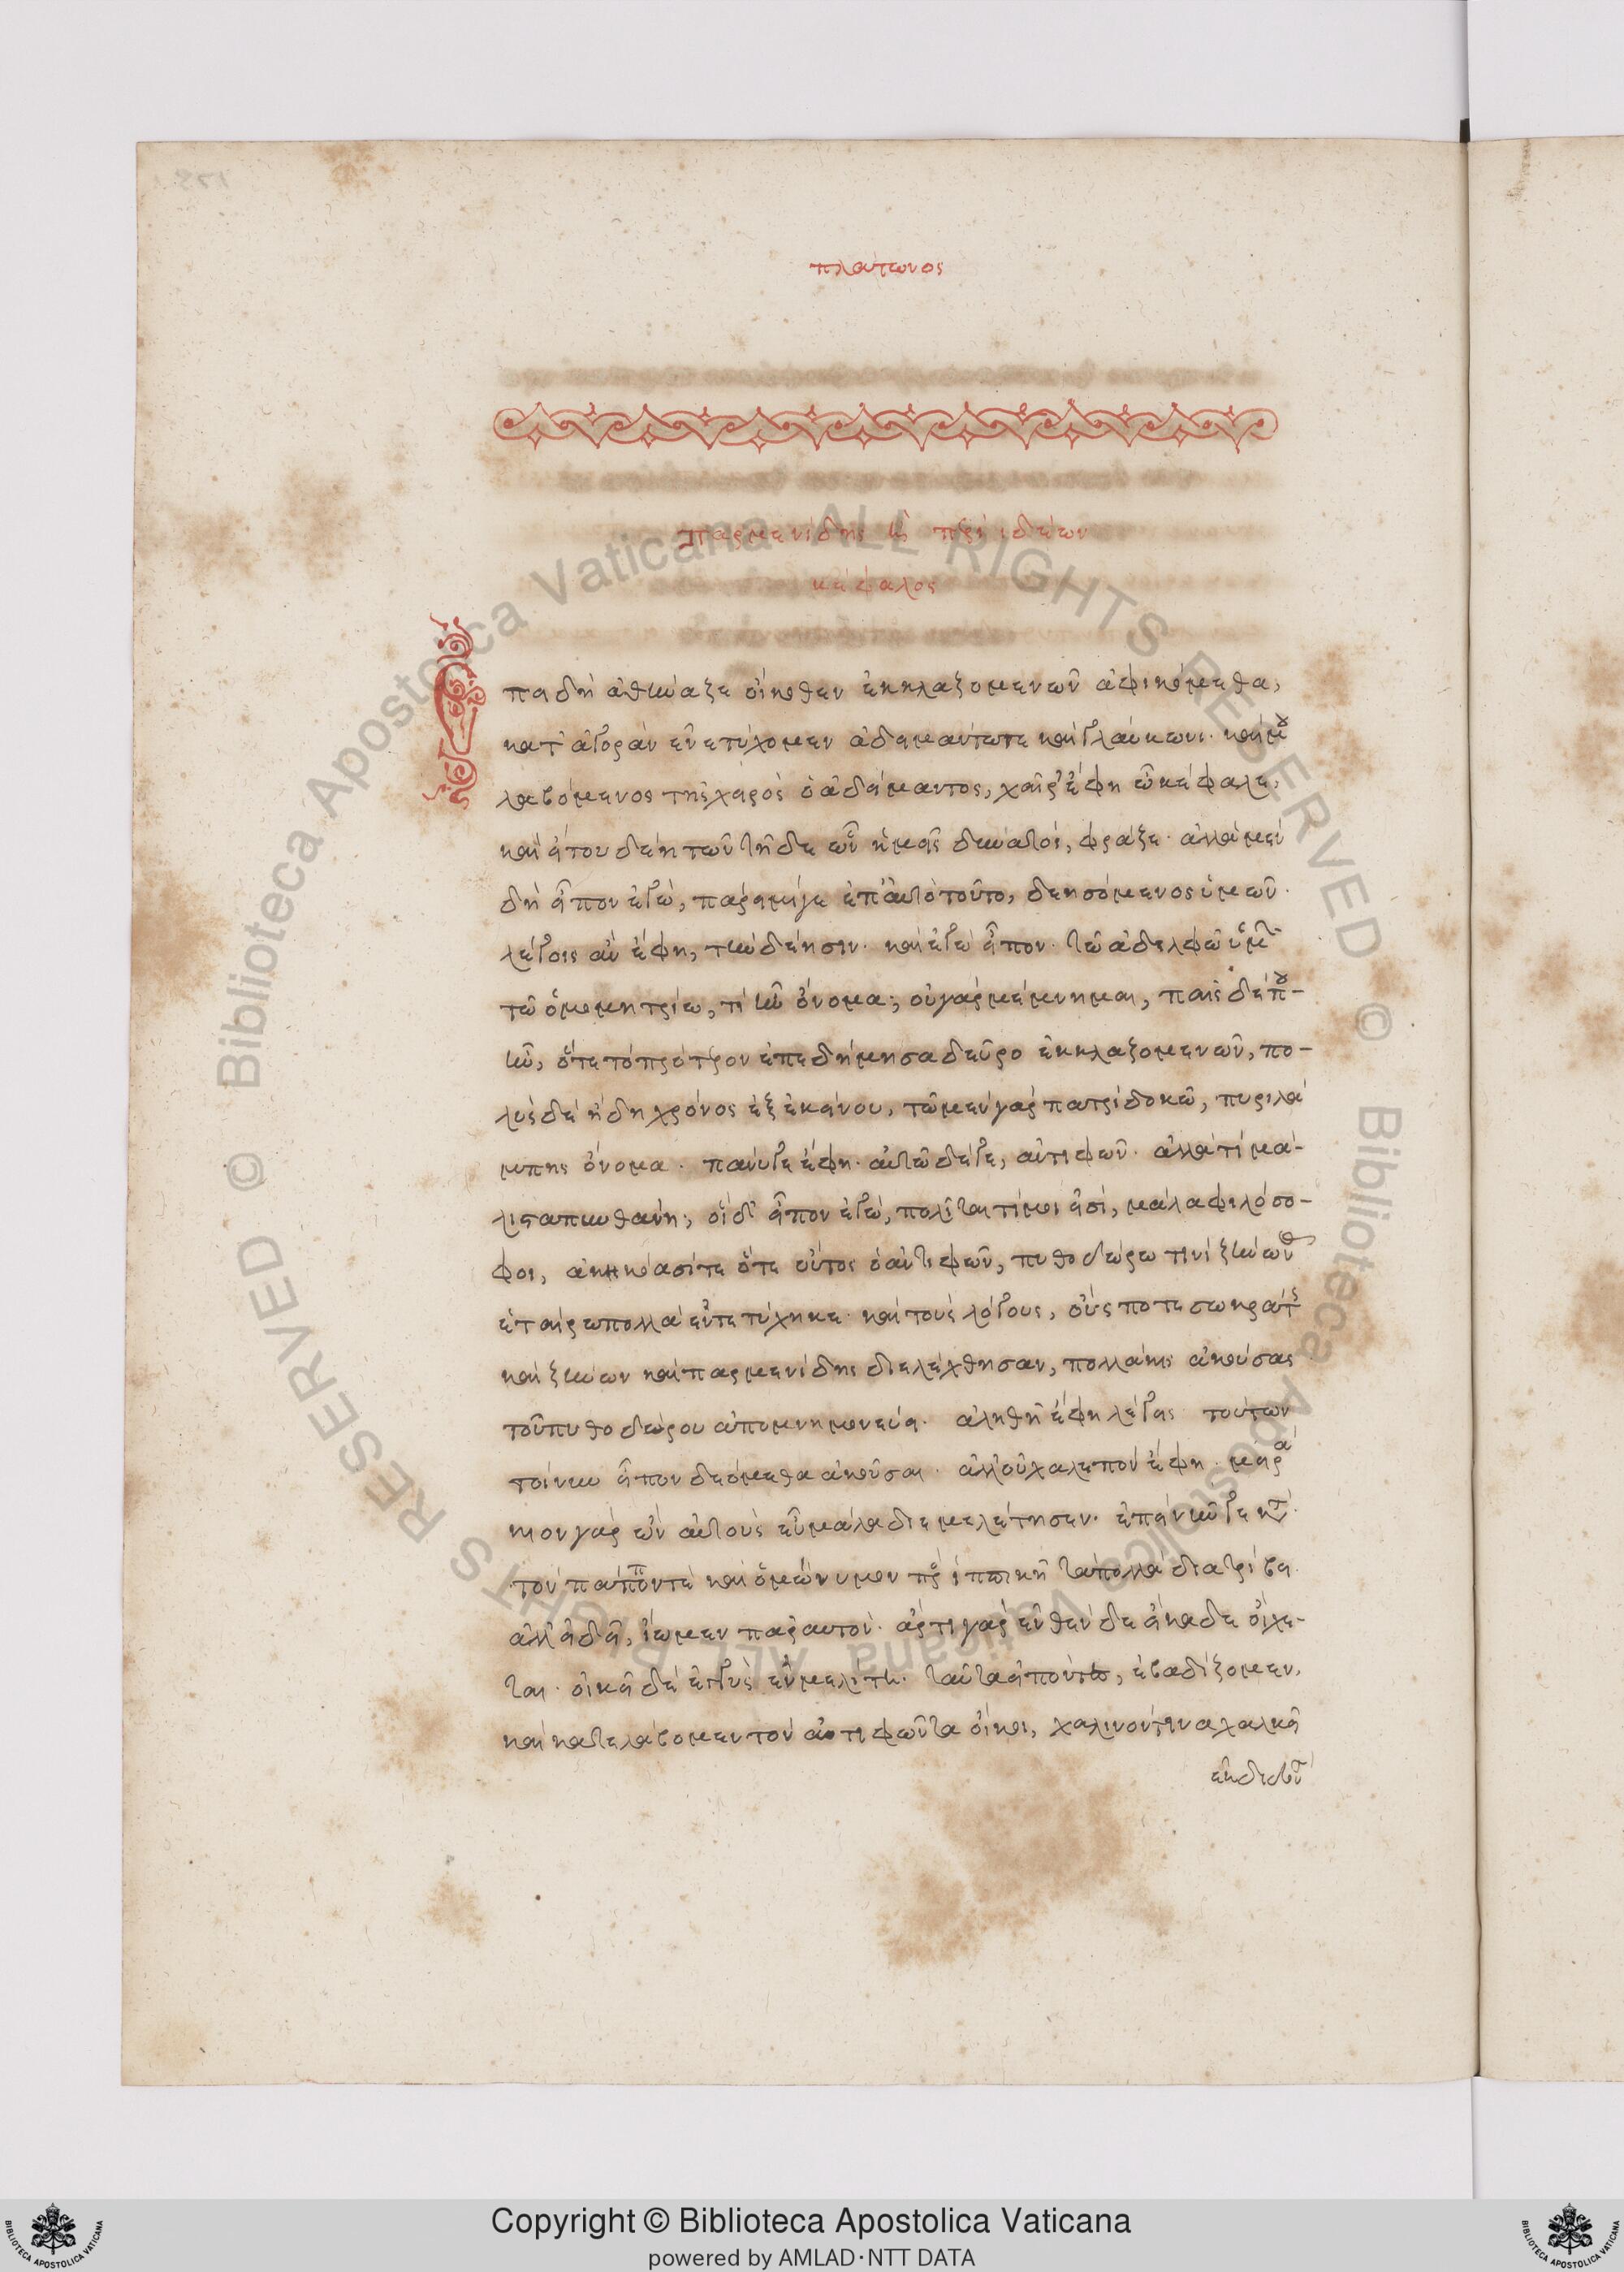 πλάτωνος
παρμενίδης ἢ περὶ ἰδεῶν
κέφαλος
Ἐπειδὴ ἀθήναζε οἴκοθεν ἐκ κλαζομενῶν ἀφικόμεθα,
κατ' ἀγορὰν ἐνετύχομεν ἀδειμάντω τε καὶ γλαύκωνι. καί μου
λαβόμενος τῆς χειρὸς ὁ ἀδείμαντος, χαῖρ' ἔφη ὦ κέφαλε,
καὶ εἴ του δέη τῶν τῆδε ὧν ἡμεῖς δυνατοί, φράζε. ἀλλὰ μὲν
δὴ εἶπον ἐγώ, πάρειμί γε ἐπ' αὐτὸ τοῦτο, δεησόμενος ὑμῶν.
λέγοις ἂν ἔφη, τὴν δέησιν. καὶ ἐγὼ εἶπον. τῶ ἀδελφῶ ὑμῶν
τῶ ὁμομητρίω, τί ἦν ὄνομα; οὐ γὰρ μέμνημαι, παῖς δέ που
ἦν, ὅτε τὸ πρότερον ἐπεδήμησα δεῦρο ἐκ κλαζομενῶν, πο-
λὺς δὲ ἤδη χρόνος ἐξ ἐκείνου, τῶ μὲν γὰρ πατρὶ δοκῶ, πυριλά
μπης ὄνομα. πάνυ γε ἔφη. αὐτῶ δέ γε, ἀντιφῶν. ἀλλὰ τί μά-
λιστα πυνθάνη; οἵδ' εἶπον ἐγώ, πολῖταί τ' ἐμοί εἰσί, μάλα φιλόσο-
φοι, ἀκηκόασί τε ὅτι οὗτος ὁ ἀντιφῶν, πυθοδώρω τινὶ ζήνωνος
ἑταίρω πολλὰ ἐντετύχηκε. καὶ τοὺς λόγους, οὕς ποτε σωκράτης
καὶ ζήνων καὶ παρμενίδης διελέχθησαν, πολλάκις ἀκούσας
τοῦ πυθοδώρου ἀπομνημονεύει. ἀληθῆ ἔφη λέγεις τούτων
τοίνυν εἶπον δεόμεθα ἀκοῦσαι. ἀλλ' οὐ χαλεπὸν ἔφη. μειρά
κιον γὰρ ὢν αὐτοὺς εὖ μάλα διεμελέτησεν. ἐπεὶ νῦν γε κατὰ
τὸν πάππον τε καὶ ὁμώνυμον πρὸς ἱππικῆ τὰ πολλὰ διατρίβει.
ἀλλ' εἰ δεῖ, ἴωμεν παρ' αὐτόν. ἄρτι γὰρ ἐνθένδε οἴκαδε οἴχε-
ται. οἰκεῖ δὲ ἐγγὺς ἐν μελίτη. ταῦτα εἰπόντες, ἐβαδίζομεν.
καὶ κατελάβομεν τὸν ἀντιφῶντα οἴκοι, χαλινόν τινα χαλκεῖ
ἐκδιδόντα